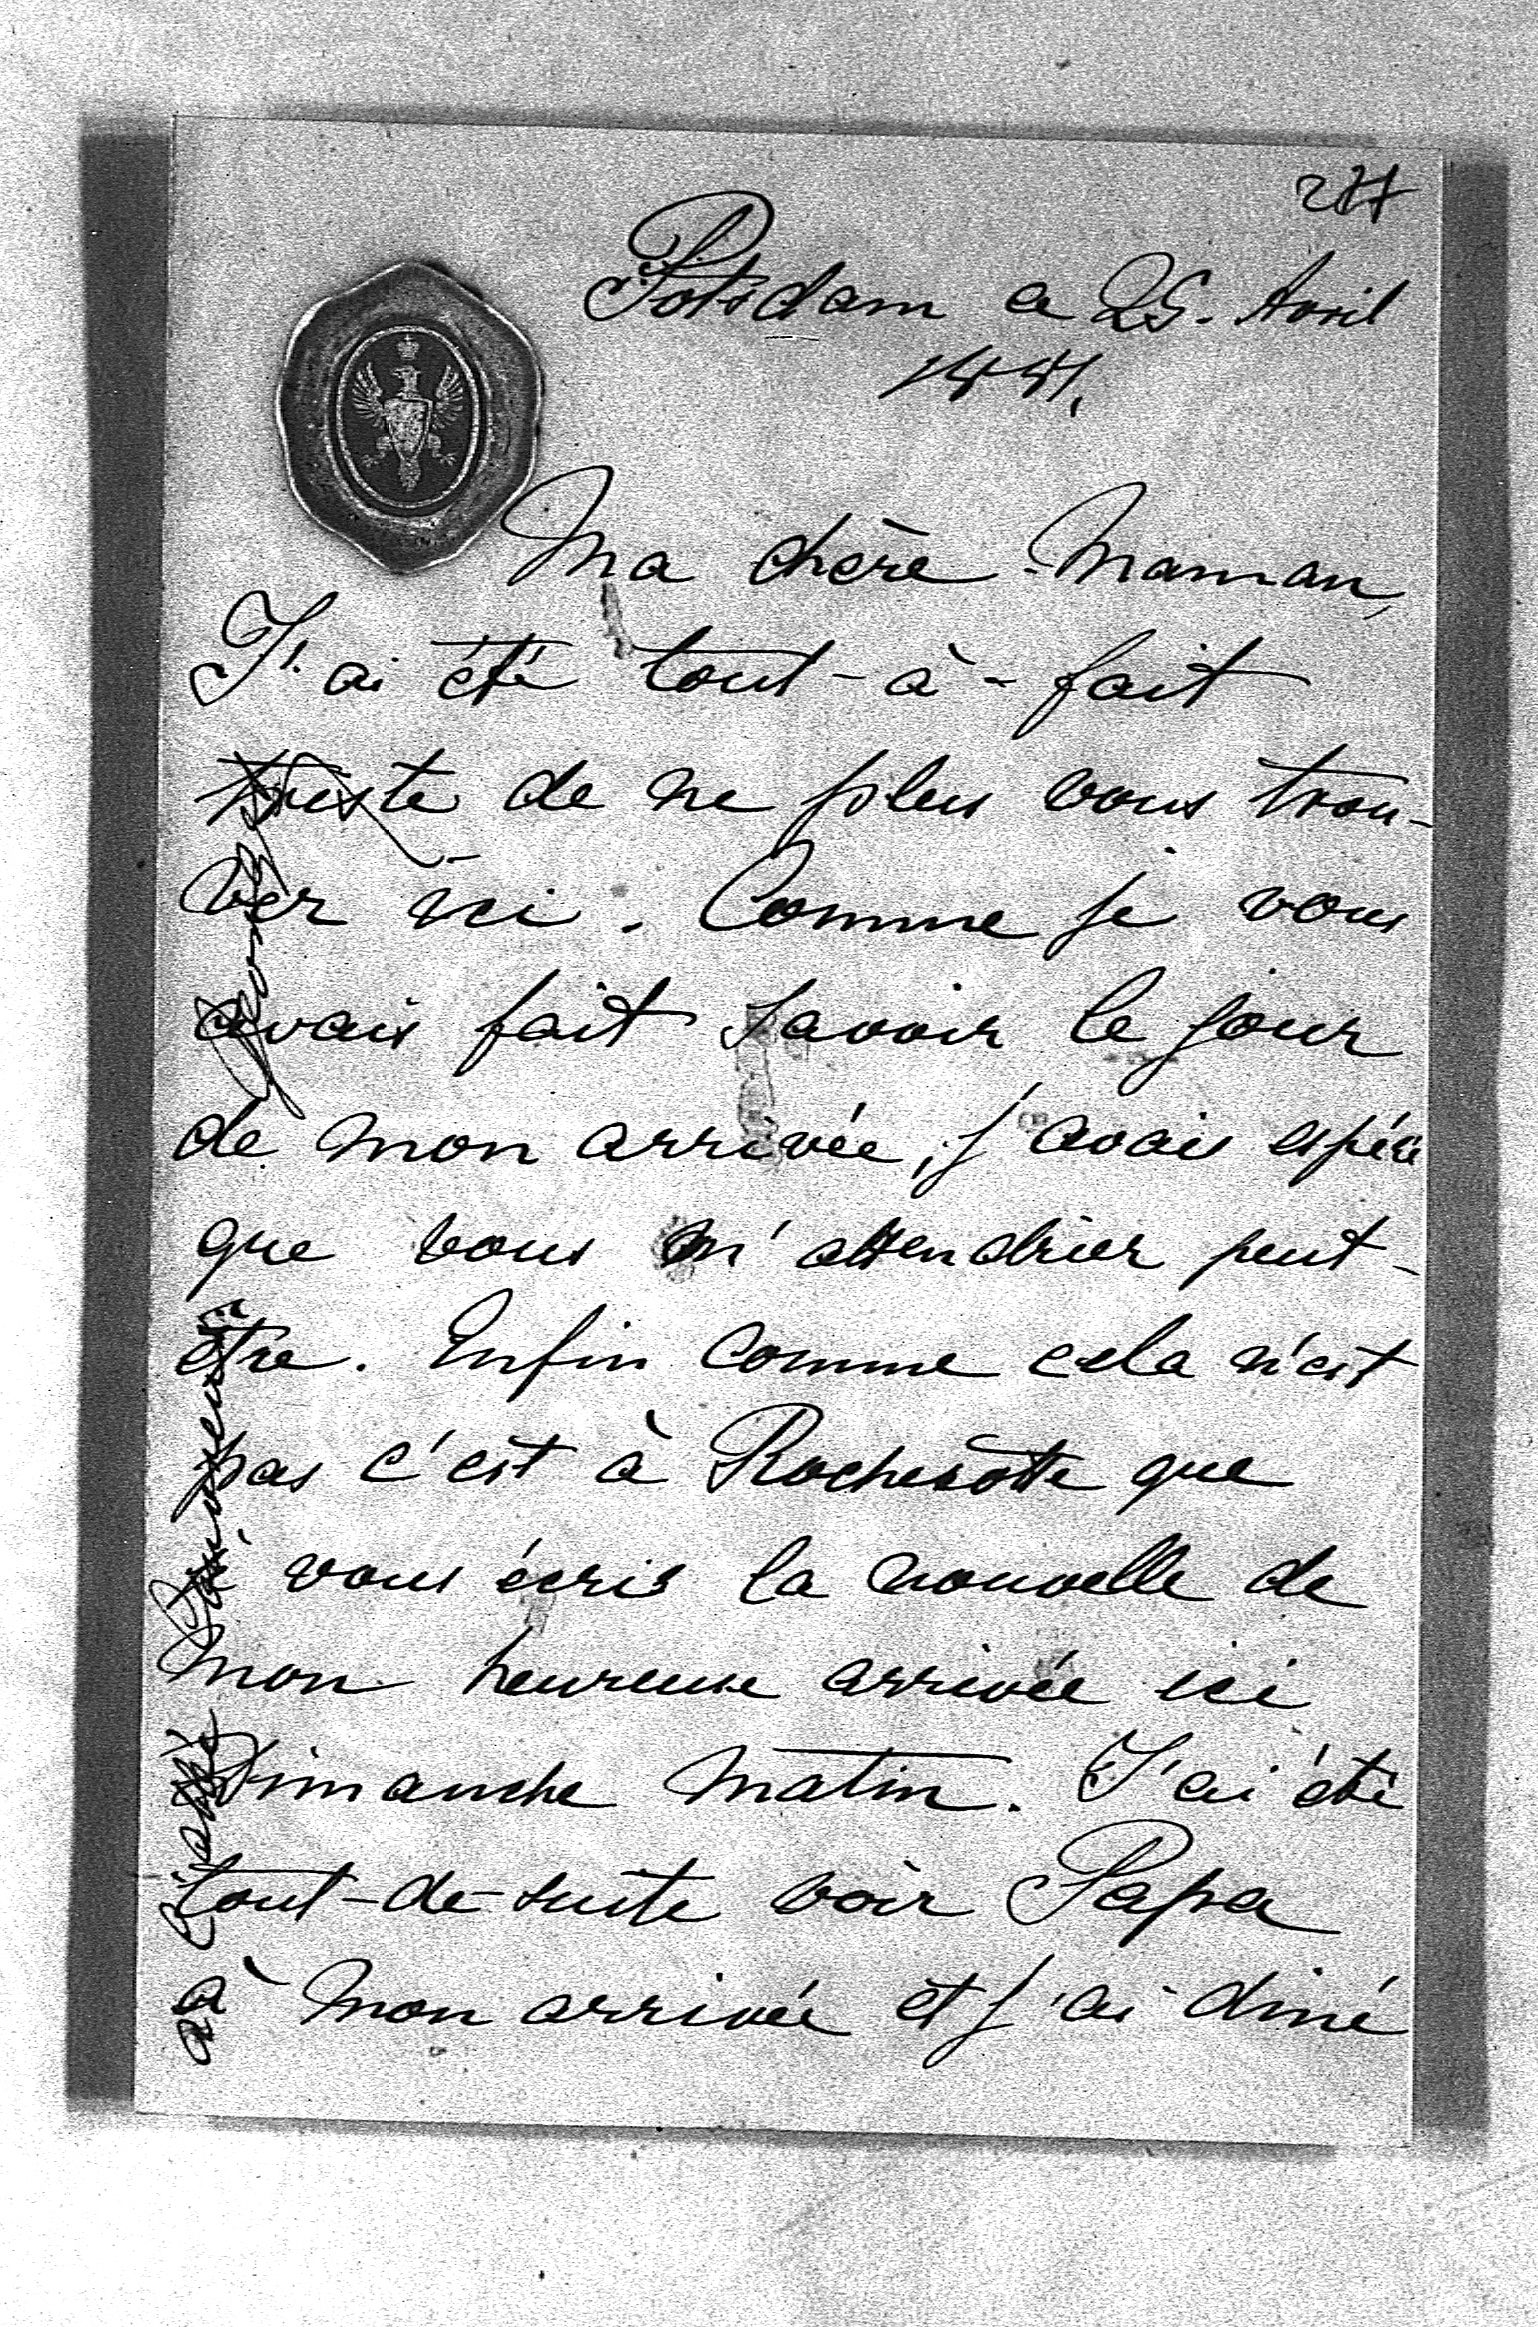 Potsdam ce 25. Avril
Ma chère Maman,
J'ai été tout-à-fait
triste de ne plus vous trou-
ver ici. Comme je vous
avais fait savoir le jour
de mon arrivée, j'avais espéré
que vous m'attendriez peut-
être. Enfin comme cela n'est
pas c'est à Rochecotte que
vous écris la nouvelle de
mon heureuse arrivée ici
Dimanche matin. J'ai été
tout-de-suite voir Papa
à mon arrivée et j'ai diné